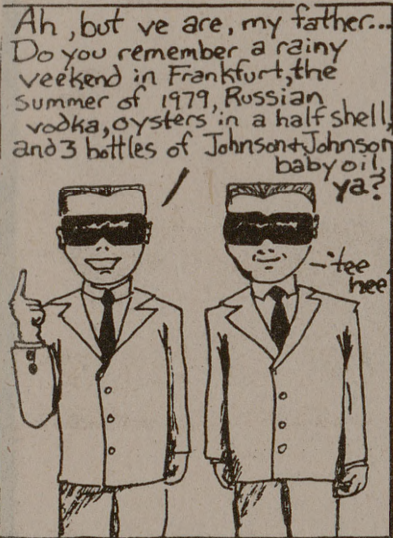 Ah, but ve are, my father...
Do you remember a rainy
veekend in Frankfurt, the
summer of 1979, Russian
vodka, oysters in a half shell,
and 3 bottles of Johnson+Johnson
baby oil,
ya?
-'tee
hee'